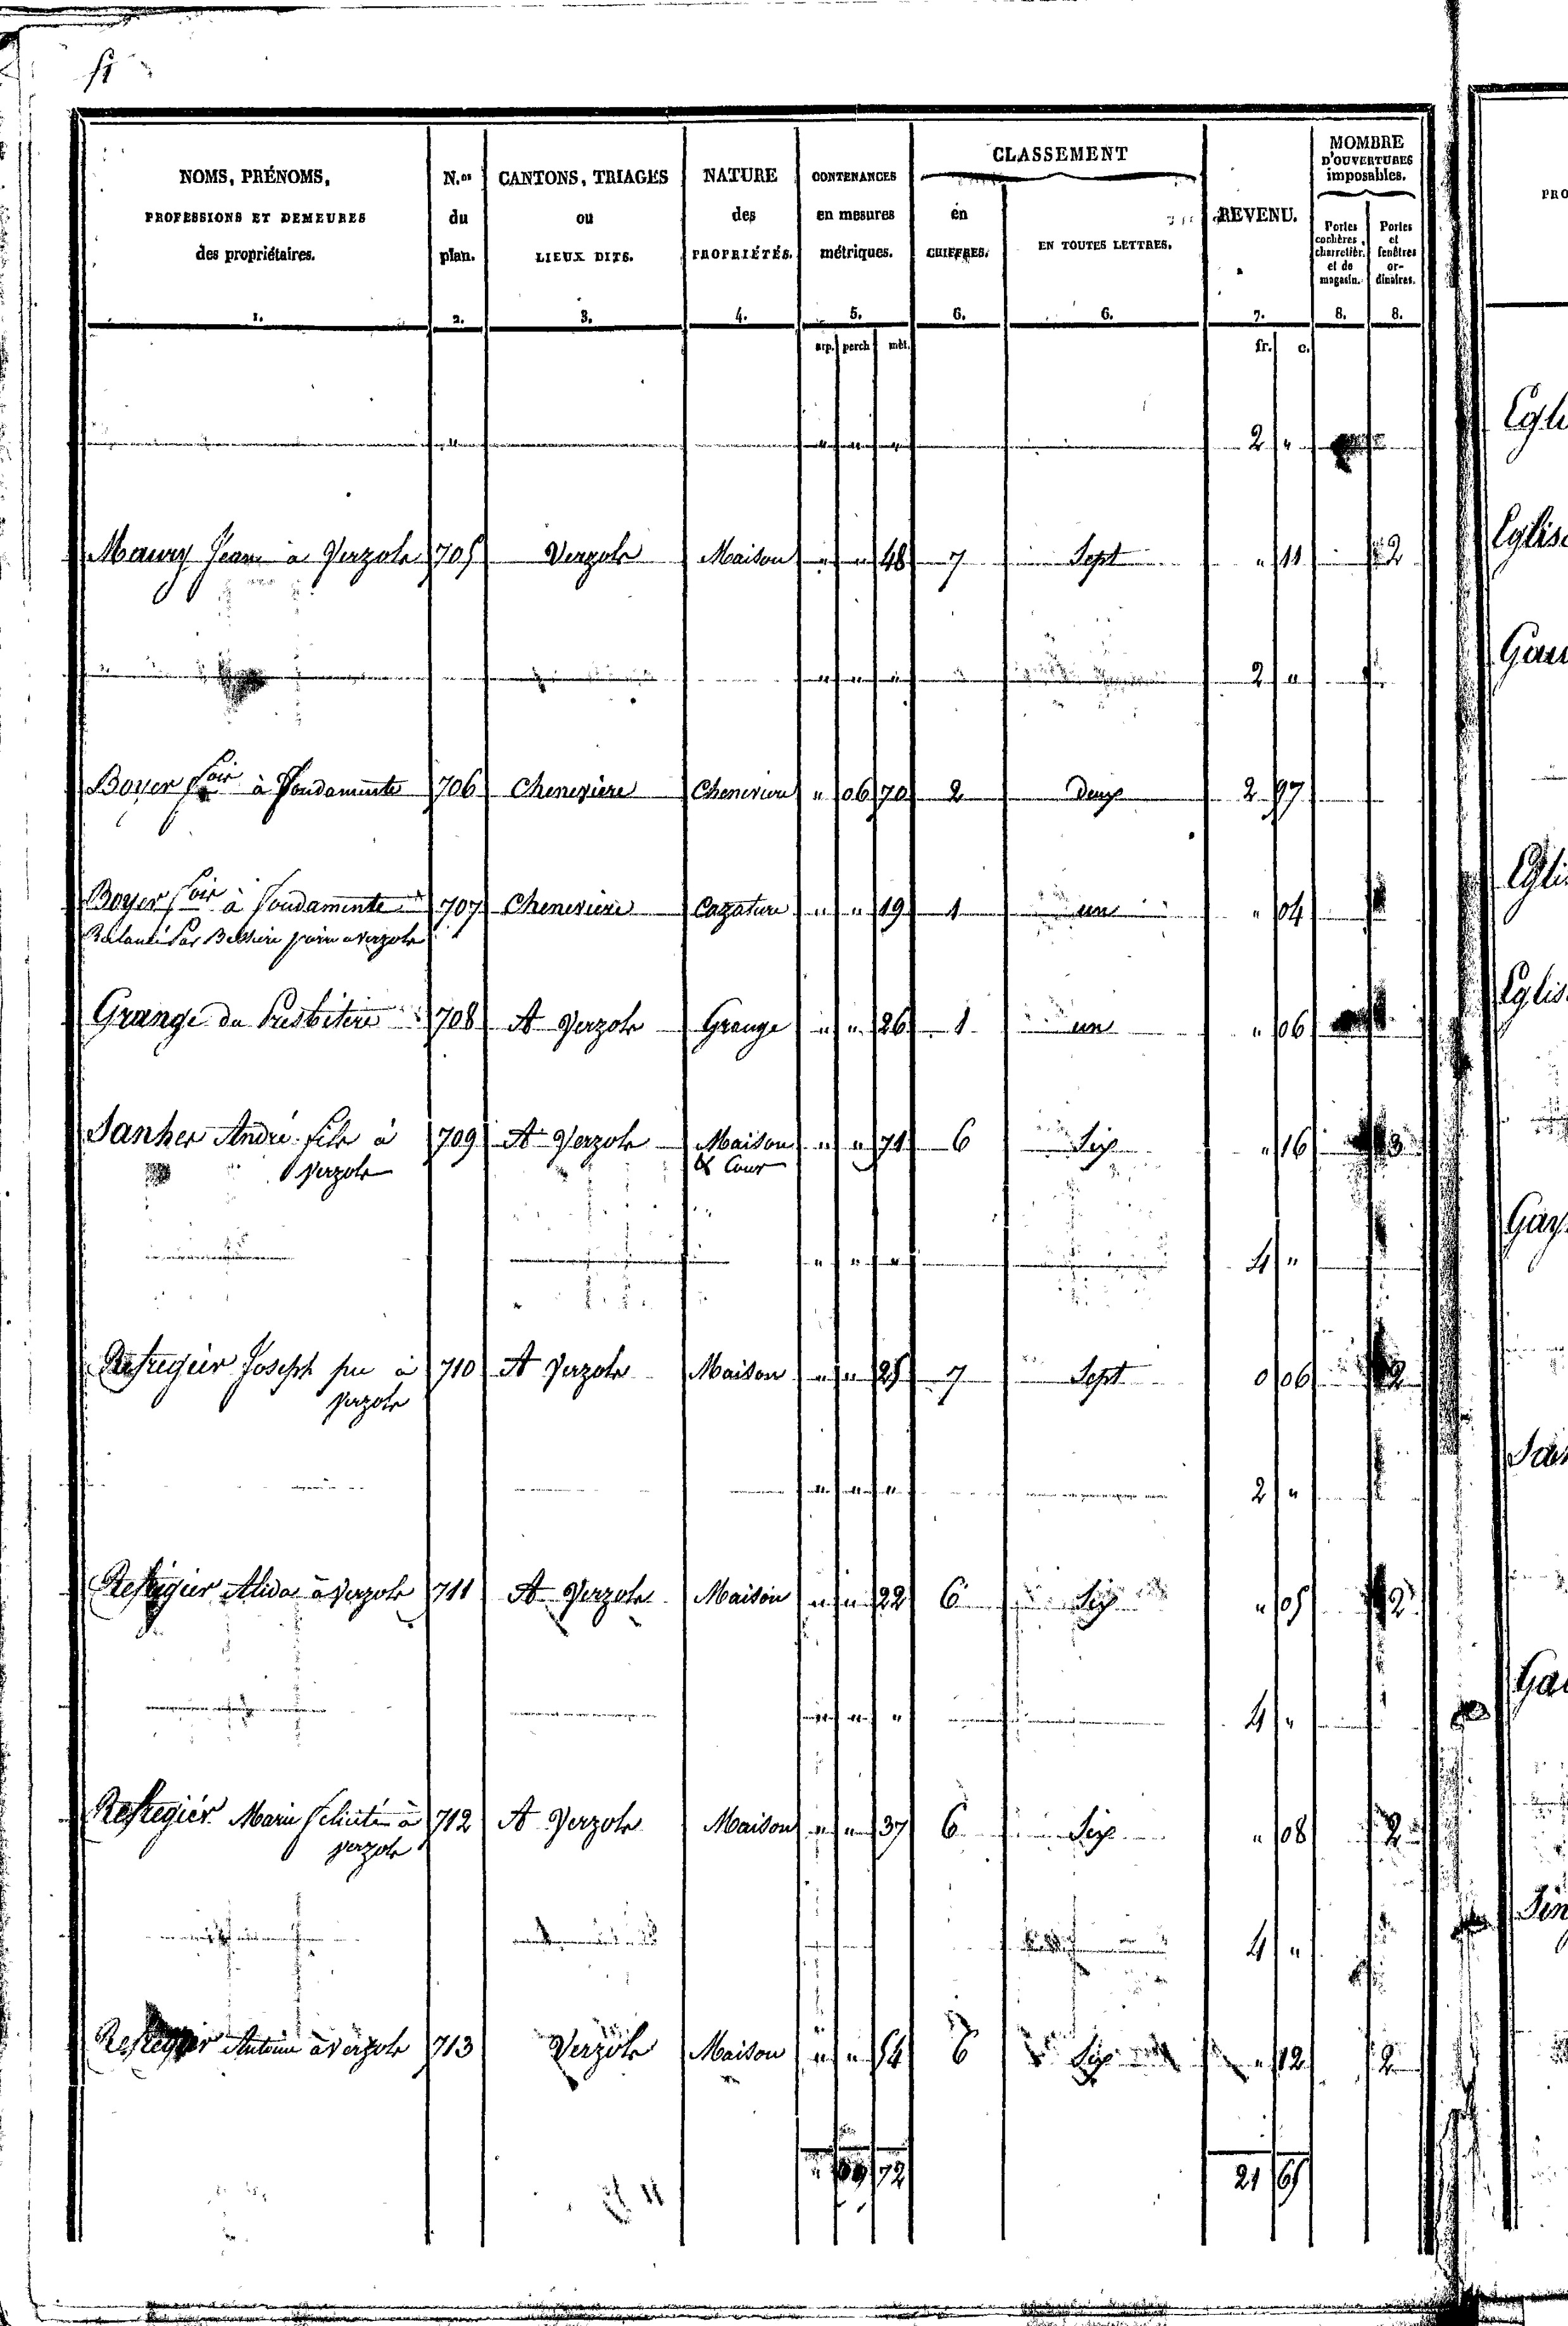 51
NOMS, PRÉNOMS,
PROFESSIONS ET DEMEURES
des propriétaires.
1.
N.os
du
plan.
2.
CANTONS, TRIAGES
ou
LIEUX DITS.
3.
NATURE
des
PROPRIÉTÉS.
4.
CONTENANCES
en mesures
métriques.
5.
CLASSEMENT
en
CHIFFRES.
6.
EN TOUTES LETTRES.
6.
REVENU.
7.
MOMBRE
D'OUVERTURES
imposables.
Portes
cochères,
charretièr.
et de
magasin.
8.
Portes
et
fenêtres
or-
dinaires.
8.
arp. perch mèt. fr. c.
" " " " 2 "
Maury Jean à Verzols 705 Verzols Maison " " 48 7 Sept " 11 2
" " " 2 "
Boyer Loir à Fondamente 706 Cheneviere Cheneviere " 06 70 2 Deux 2 97
Boyer Loir à Fondamente 707 Cheneviere Cazature " " 19 1 un " 04
Par Bessiere à Verzols
Grange du Presbitere 708 A Verzols Grange " " 26 1 un " 06
Sanher André fils à 709 A Verzols Maison " " 71 6 Six " 16 3
Verzols & Cour
" " " 4 "
Refregier Joseph à 710 A Verzols Maison " " 25 7 Sept 0 06 2
Verzols
" " " 2 "
Refregier à Verzols 711 A Verzols Maison " " 22 6 Six " 05 2
" " " 4 "
Refregier Marie Felicité à 712 A Verzols Maison " " 37 6 Six " 08 2
Verzols
4 "
Refregier Antoine à Verzols 713 Verzols Maison " " 54 6 Six " 12 2
" 09 72 21 65